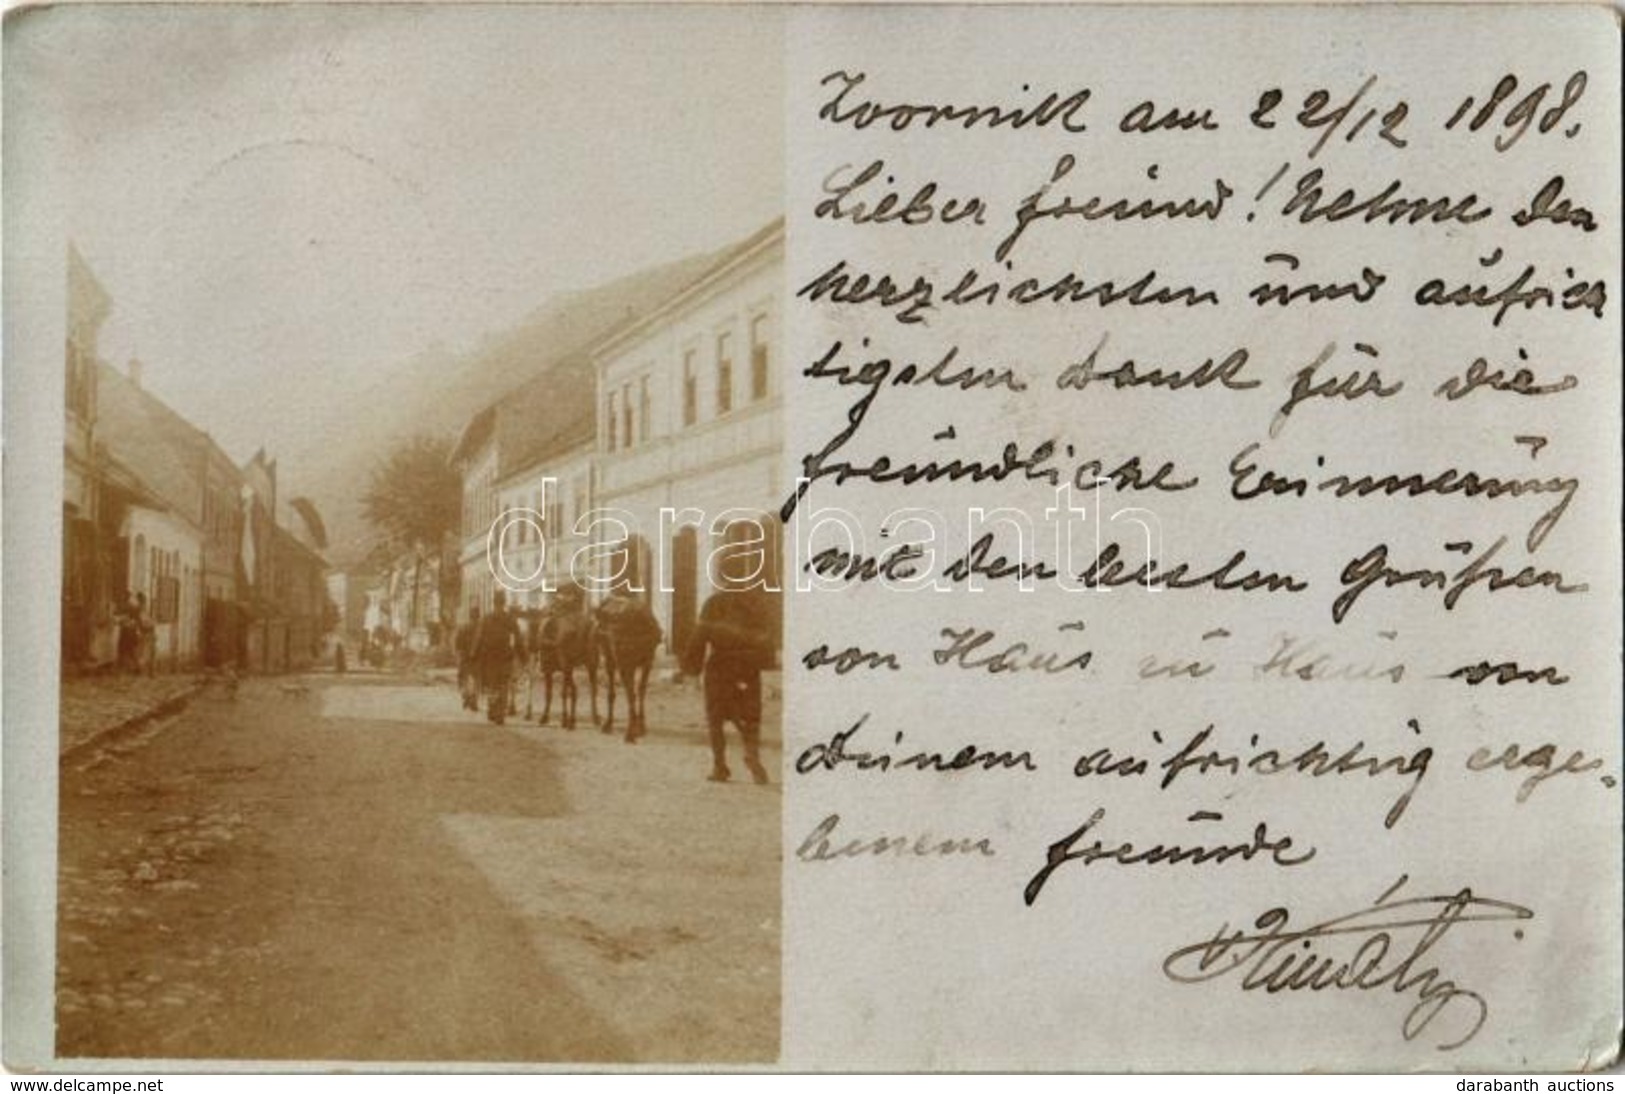 Zvornik am 22/12 1898.
Lieber Freund! Nehme den
herzlichsten und aufrich
tigsten Dank für die
freundliche Erinnerung
mit den besten Grüßen
von Haus zu Haus von
Deinem aufrichtig erge-
benem Freunde
darabanth
www.delcampe.net
darabanth auctions